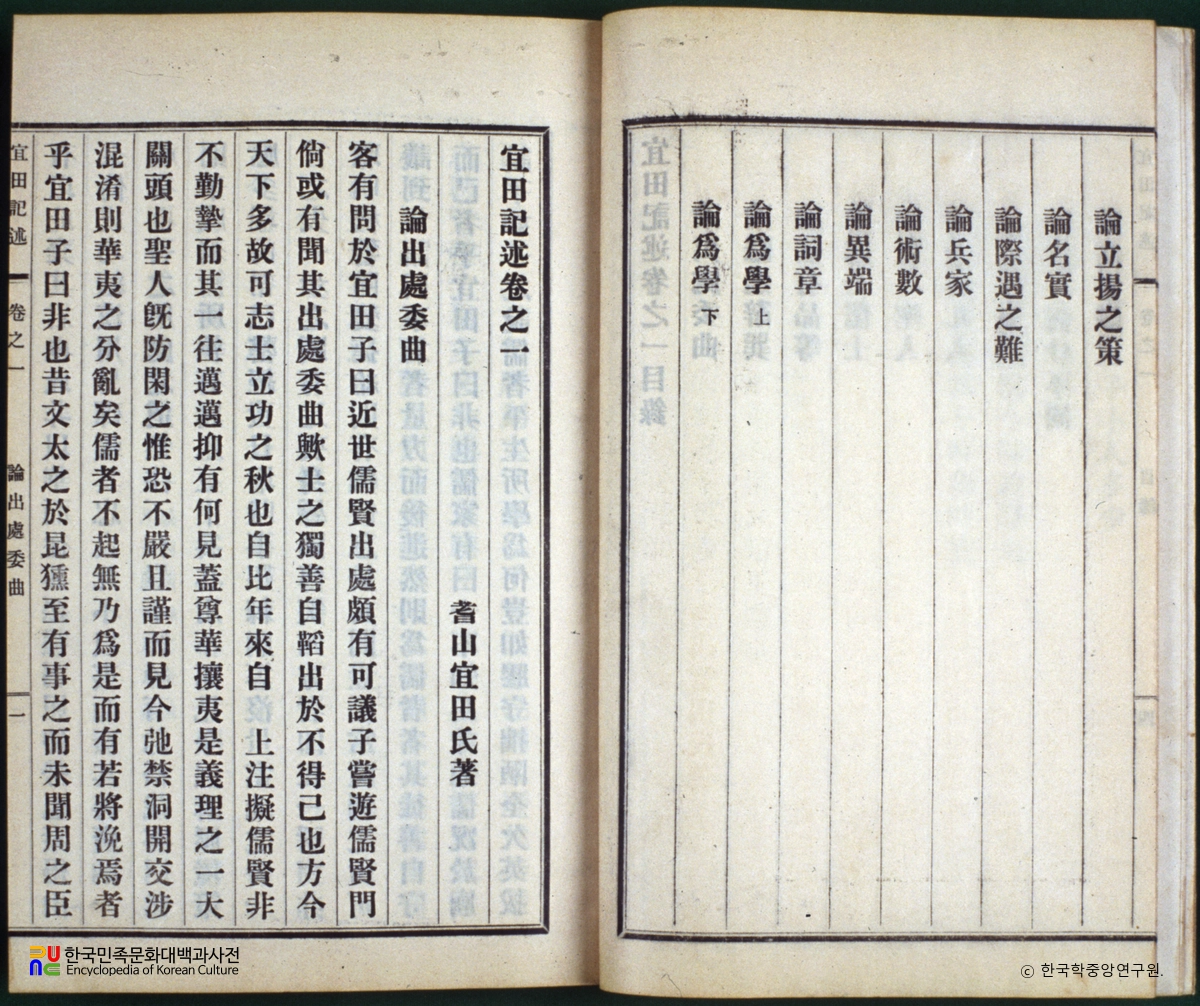 論立揚之策
論名實
論際遇之難
論兵家
論術數
論異端
論詞章
論爲學 上
論爲學 下
宜田記述卷之一
耆山宜田氏著
論出處委曲
客有問於宜田子曰近世儒賢出處頗有可議子嘗遊儒賢門
倘或有聞其出處委曲歟士之獨善自韜出於不得已也方今
天下多故可志士立功之秋也自比年來自 上注擬儒賢非
不勤摯而其一往邁邁抑有何見蓋尊華攘夷是義理之一大
關頭也聖人旣防閑之惟恐不嚴且謹而見今弛禁洞開交涉
混淆則華夷之分亂矣儒者不起無乃爲是而有若將浼焉者
乎宜田子曰非也昔文太之於昆獯至有事之而未聞周之臣
宜田記述 卷之一 論出處委曲 一
한국민족문화대백과사전
Encyclopedia of Korean Culture
© 한국학중앙연구원.